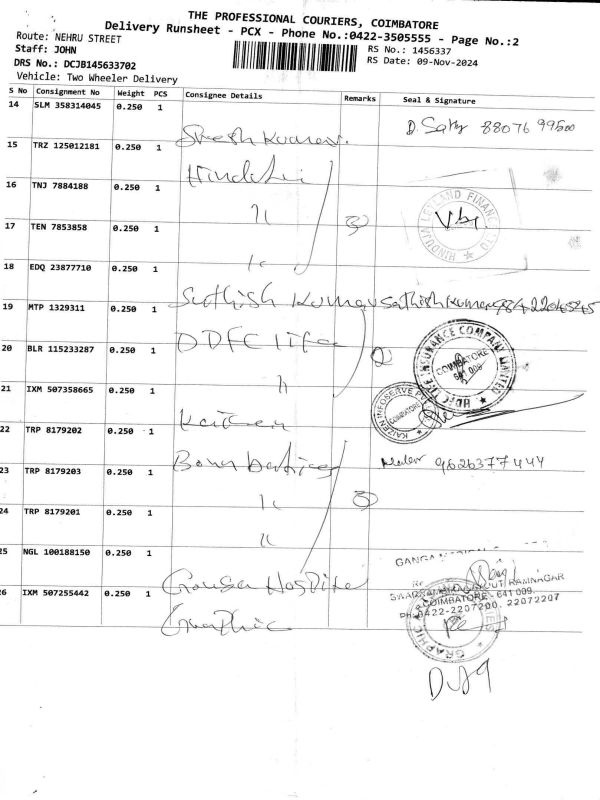 THE PROFESSIONAL COURIERS, COIMBATORE
Delivery Runsheet - PCX - Phone No.:0422-3505555 - Page No.:2
Route: NEHRU STREET
RS No.: 1456337
Staff: JOHN
RS Date: 09-Nov-2024
DRS No.: DCJB145633702
Vehicle: Two Wheeler Delivery
S No Consignment No Weight PCS Consignee Details Remarks Seal & Signature
14 SLM 358314045 0.250 1
D. Sathy 88076 99500
15 TRZ 125012181 0.250 1
16 TNJ 7884188 0.250 1
HINDUJA LEYLAND FINANCE LTD
17 TEN 7853858 0.250 1
18 EDQ 23877710 0.250 1
Sathish Kumar Sathish Kumar
19 MTP 1329311 0.250 1
HDFC LIFE INSURANCE COMPANY LIMITED
COIMBATORE
20 BLR 115233287 0.250 1
21 IXM 507358665 0.250 1
KAIZEN INFOSERVE PVT
COIMBATORE
Kaizen
22 TRP 8179202 0.250 1
9626377444
23 TRP 8179203 0.250 1
24 TRP 8179201 0.250 1
25 NGL 100188150 0.250 1
GANGA
Ganga Hospital
26 IXM 507255442 0.250 1
LAYOUT RAMNAGAR
COIMBATORE - 641 009.
PH: 0422-2207200, 22072207
Graphic
GRAPHIC